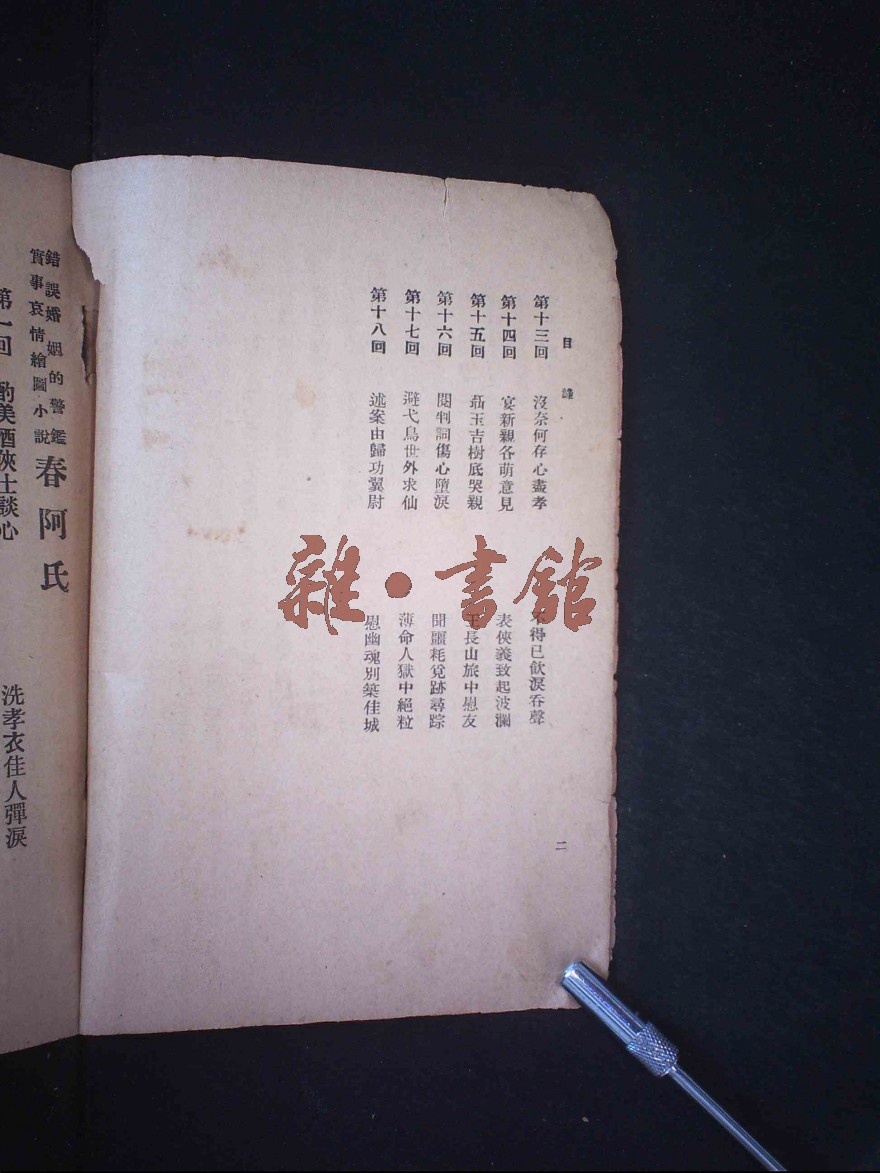 目錄
第十三回 沒奈何存心盡孝 不得已飲淚吞聲
第十四回 宴新親各萌意見 表俠義致起波瀾
第十五回 聶玉吉樹底哭親 王長山旅中慰友
第十六回 閱判詞傷心墮淚 聞噩耗覓跡尋踪
第十七回 避弋鳥世外求仙 薄命人獄中絕粒
第十八回 述案由歸功翼尉 慰幽魂別築佳城
二
雜·書館
錯誤婚姻的警鑑
實事哀情繪圖小說
春阿氏
第一回 酌美酒俠士談心 洗孝衣佳人彈淚